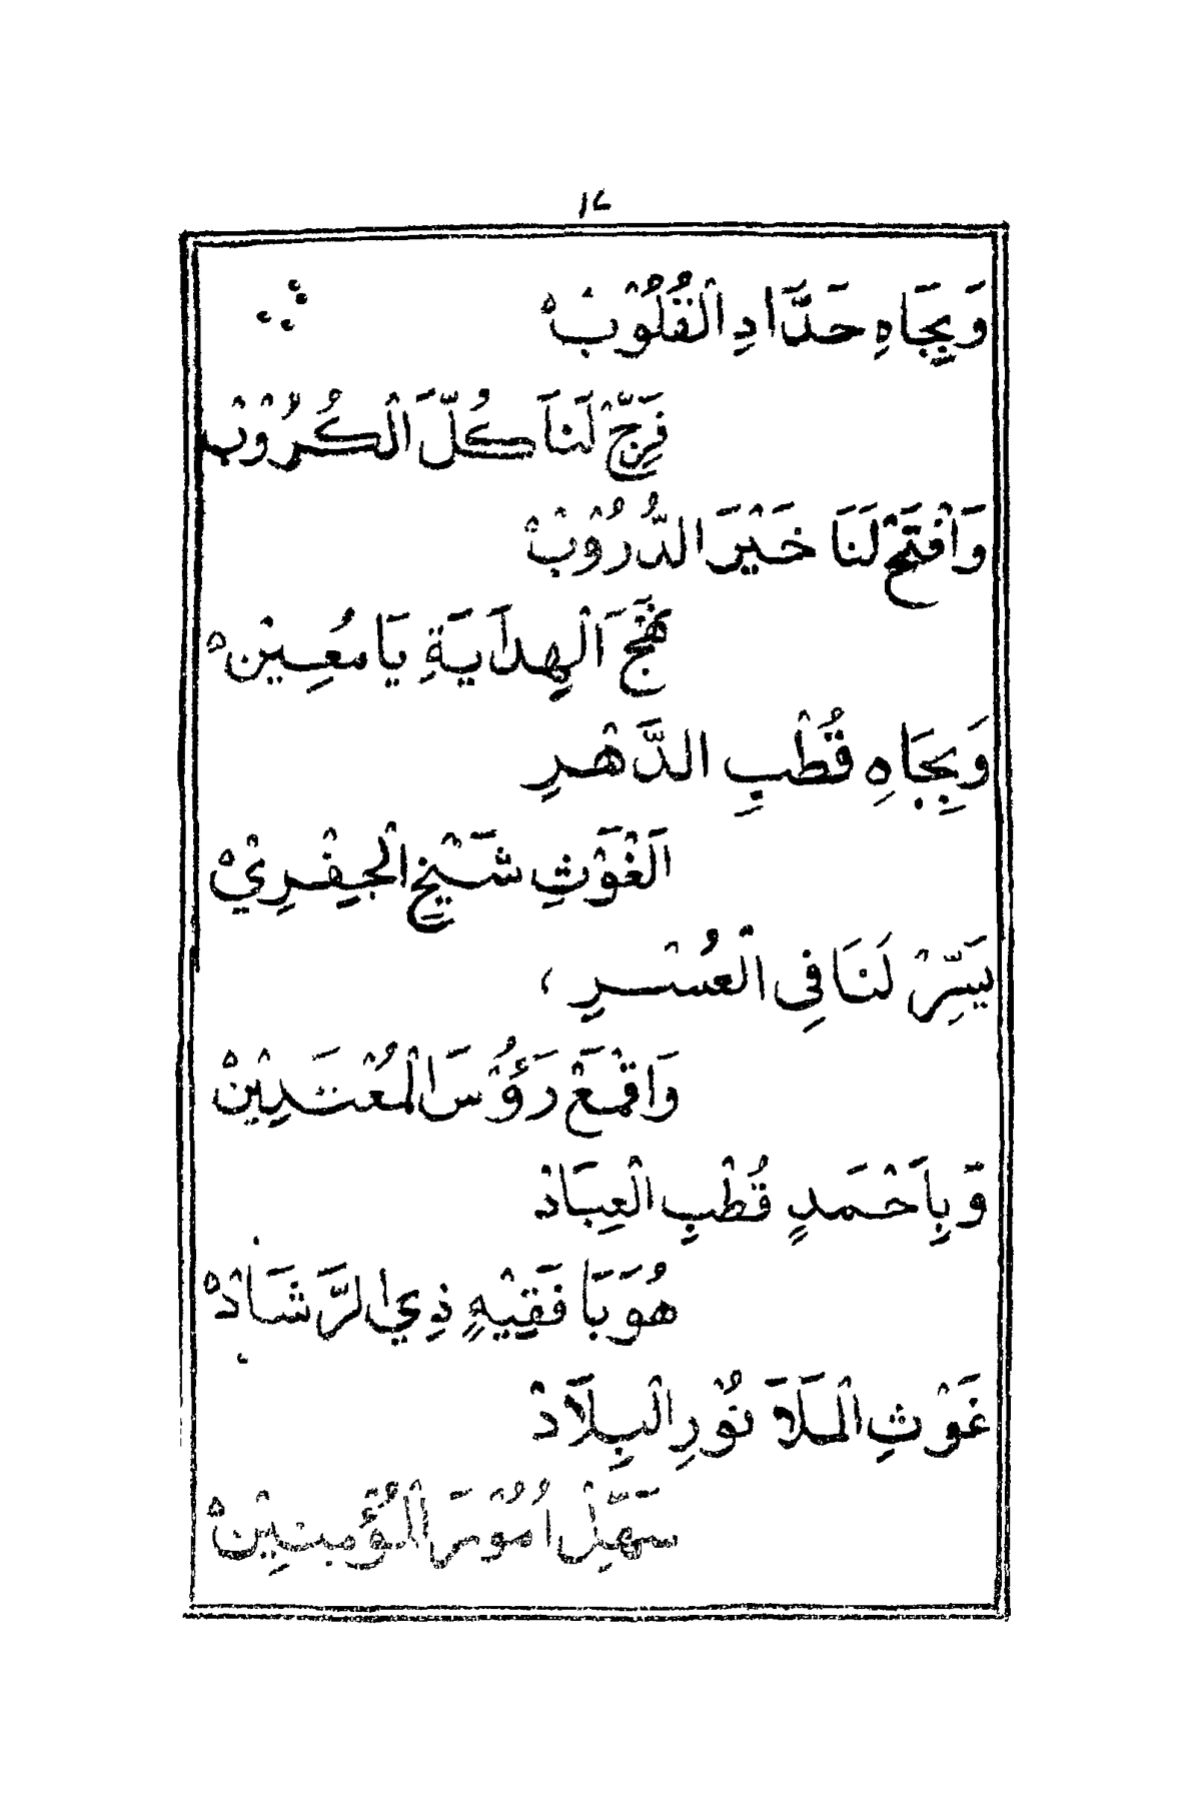 ١٤
وَبِجَاهِ حَدَّادِ الْقُلُوْبْ
فَرِّجْ لَنَا كُلَّ الْكُرُوْبْ
وَافْتَحْ لَنَا خَيْرَ الدُّرُوْبْ
نَهْجَ الْهِدَايَةِ يَا مُعِيْنْ
وَبِجَاهِ قُطْبِ الدَّهْرِ
اَلْغَوْثِ شَيْخٍ الْجِفْرِيْ
يَسِّرْ لَنَا فِى الْعُسْرِ ،
وَاقْمَعْ رَؤُوْسَ الْمُعْتَدِيْنْ
وَّبِاَحْمَدٍ قُطْبِ الْعِبَادْ
هُوَ بَا فَقِيْهٍ ذِي الرَّشَادْ
غَوْثِ الْمَلَاَ نُوْرِ الْبِلَادْ
سَهِّلْ اُمُوْرَ الْمُؤْمِنِيْنْ